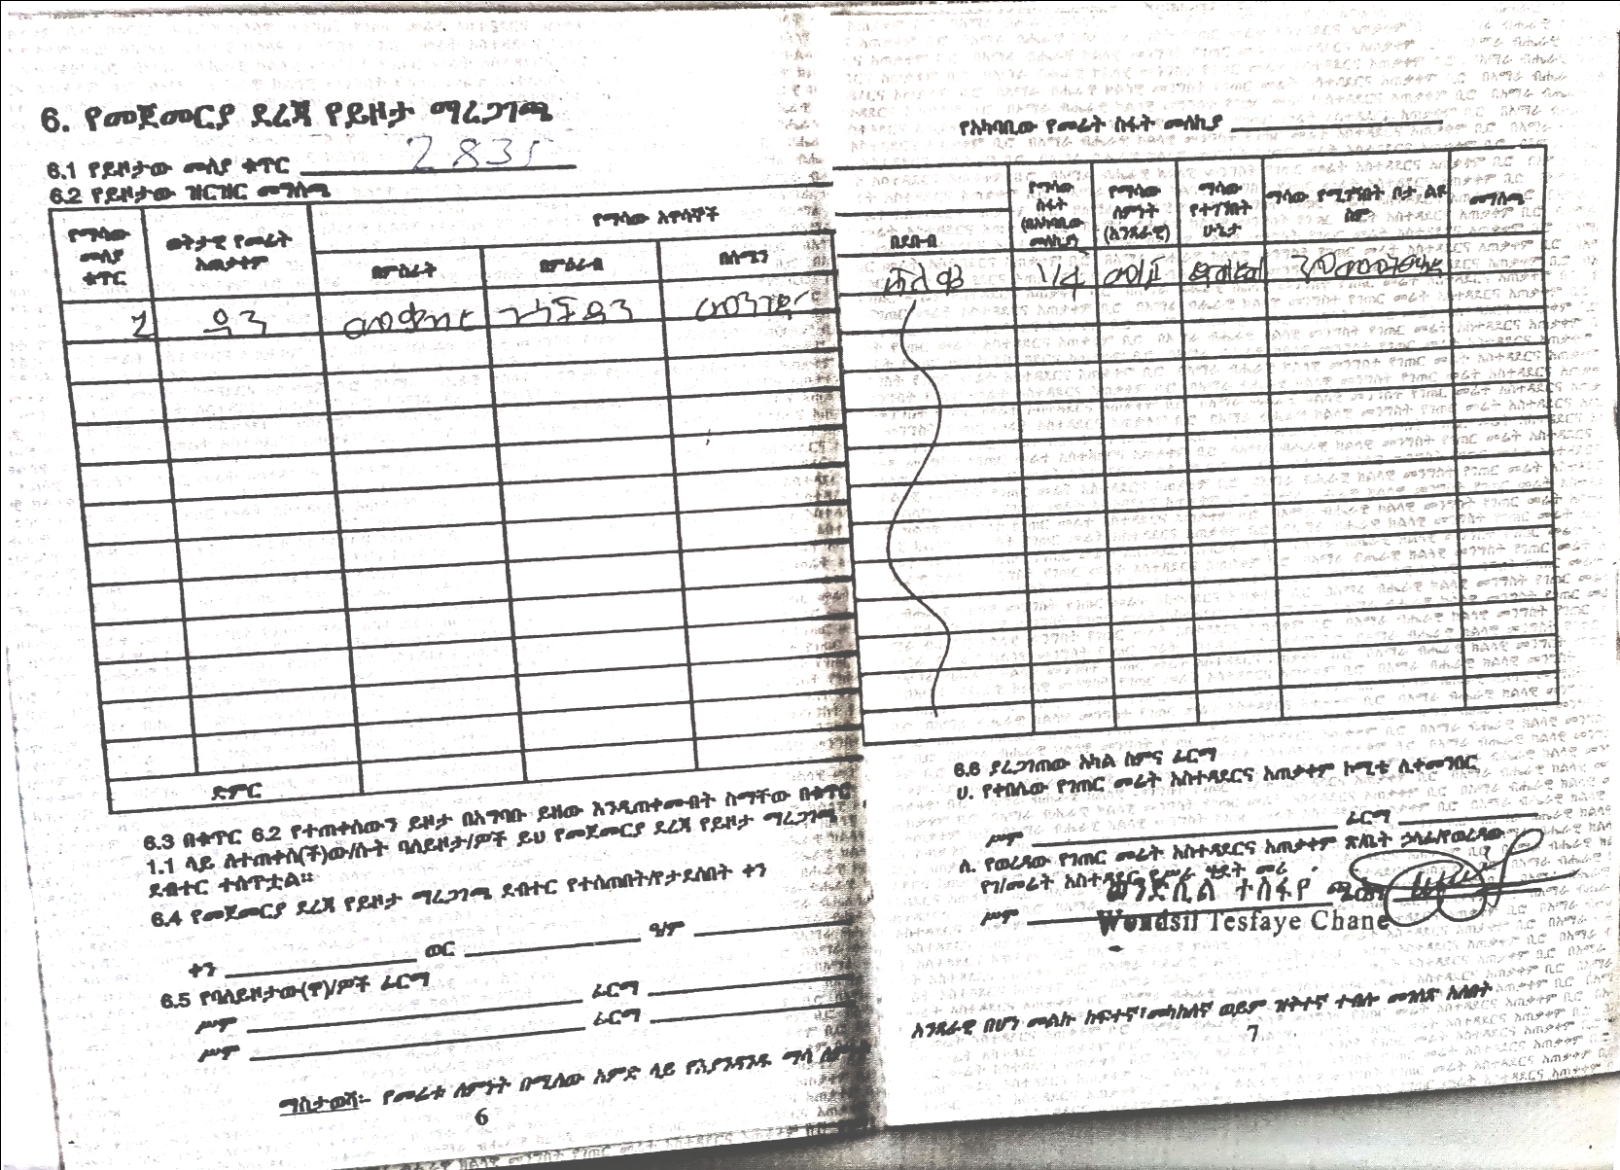 6. የመጀመርያ ደረጃ የይዞታ ማረጋገጫ
6.1 የይዞታው መለያ ቁጥር 2835
6.2 የይዞታው ዝርዝር መግለጫ
የማሳው መለያ ቁጥር
ወቅታዊ የመሬት አጠቃቀም
የማሳው አዋሳኞች
በምስራት
በምዕራብ
በሰሜን
ድምር
6.3 በቁጥር 6.2 የተጠቀሰውን ይዞታ በአግባቡ ይዘው እንዲጠቀሙበት ስማቸው በቁጥር
1.1 ላይ ለተጠቀሰ(ች)ው/ሱት ባለይዞታ/ዎች ይህ የመጀመርያ ደረጃ የይዞታ ማረጋገጫ
ደብተር ተሰጥቷል።
6.4 የመጀመርያ ደረጃ የይዞታ ማረጋገጫ ደብተር የተሰጠበት/የታደሰበት ቀን
ቀን ወር ዓ/ም
6.5 የባለይዞታው(ዋ)/ዎች ፊርማ
ሥም ፊርማ
ሥም ፊርማ
ማስታወሻ፡- የመሬቱ ለምነት በሚለው አምድ ላይ የእያንዳንዱ ማሳ ለምነት
6
የአካባቢው የመሬት ስፋት መለኪያ
በደቡብ
የማሳው ስፋት (በአካባቢው መለኪያ)
የማሳው ለምነት (እንዳራዊ)
ማሳው የተገኘበት ሁኔታ
ማሳው የሚገኝበት ቦታ ልዩ ስም
መግለጫ
1/4
6.6 ያረጋገጠው አካል ስምና ፊርማ
ሀ. የቀበሌው የገጠር መሬት አስተዳደርና አጠቃቀም ኮሚቴ ሊቀመንበር
ሥም ፊርማ
ለ. የወረዳው የገጠር መሬት አስተዳደርና አጠቃቀም ጽ/ቤት ኃላፊ/የወረዳው
የገ/መሬት አስተዳደር የሥራ ሂደት መሪ
ወንድሲል ተስፋዬ ጫኔ
ሥም
Wondsil Tesfaye Chane
እንዳራዊ በሆነ መልኩ ከፍተኛ፣መካከለኛ ወይም ዝቅተኛ ተብሎ መገለጽ አለበት
7